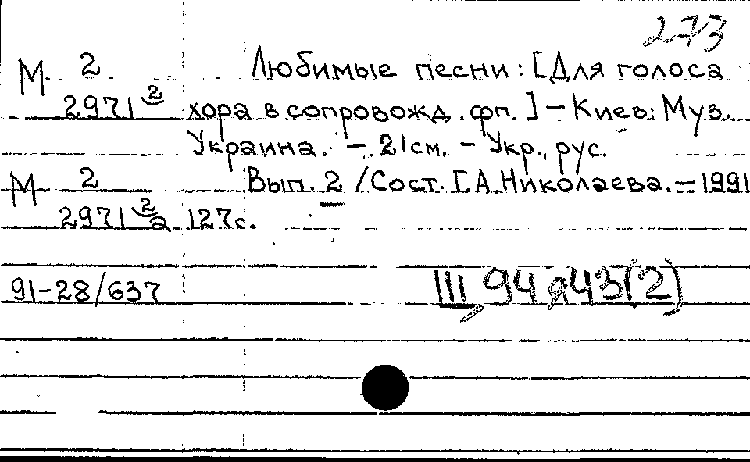 273
М 2 Любимые песни: [Для голоса
2971 2 хора в сопровожд. фп.] – Киев: Муз.
Украина. – 21см. – Укр., рус.
М 2 Вып. 2 / Сост. Г.А. Николаева. – 1991
2971 2а 127с.
91-28/637 III 94 я43(2)